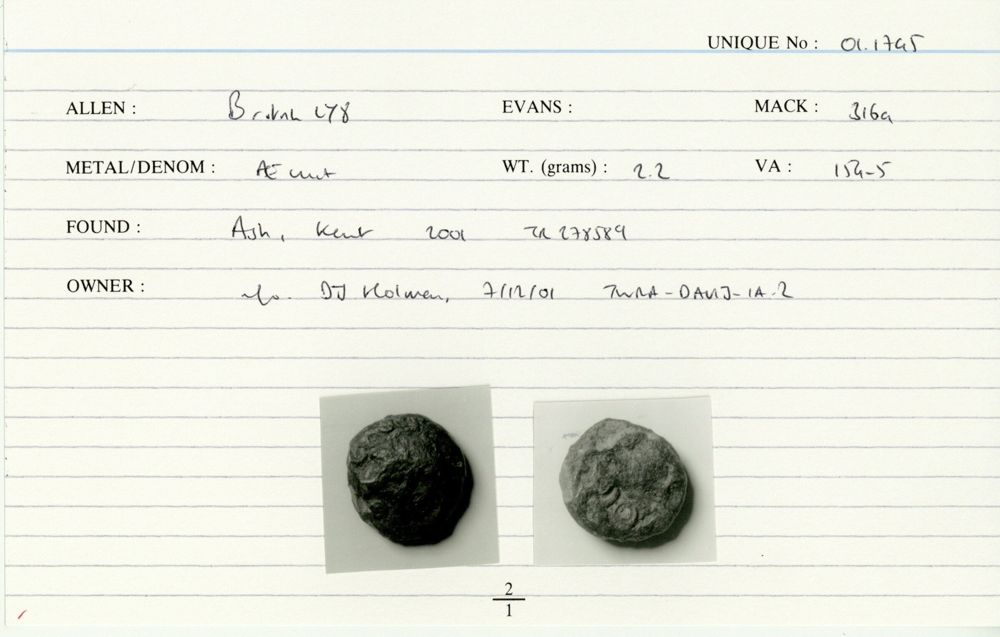 UNIQUE No : 01.1795
ALLEN : British LY8 EVANS : MACK : 316a
METAL/DENOM : Æ unit WT. (grams) : 2.2 VA : 154-5
FOUND : Ash, Kent 2001 TR 278584
OWNER : info. DJ Holman, 7/12/01
2
1